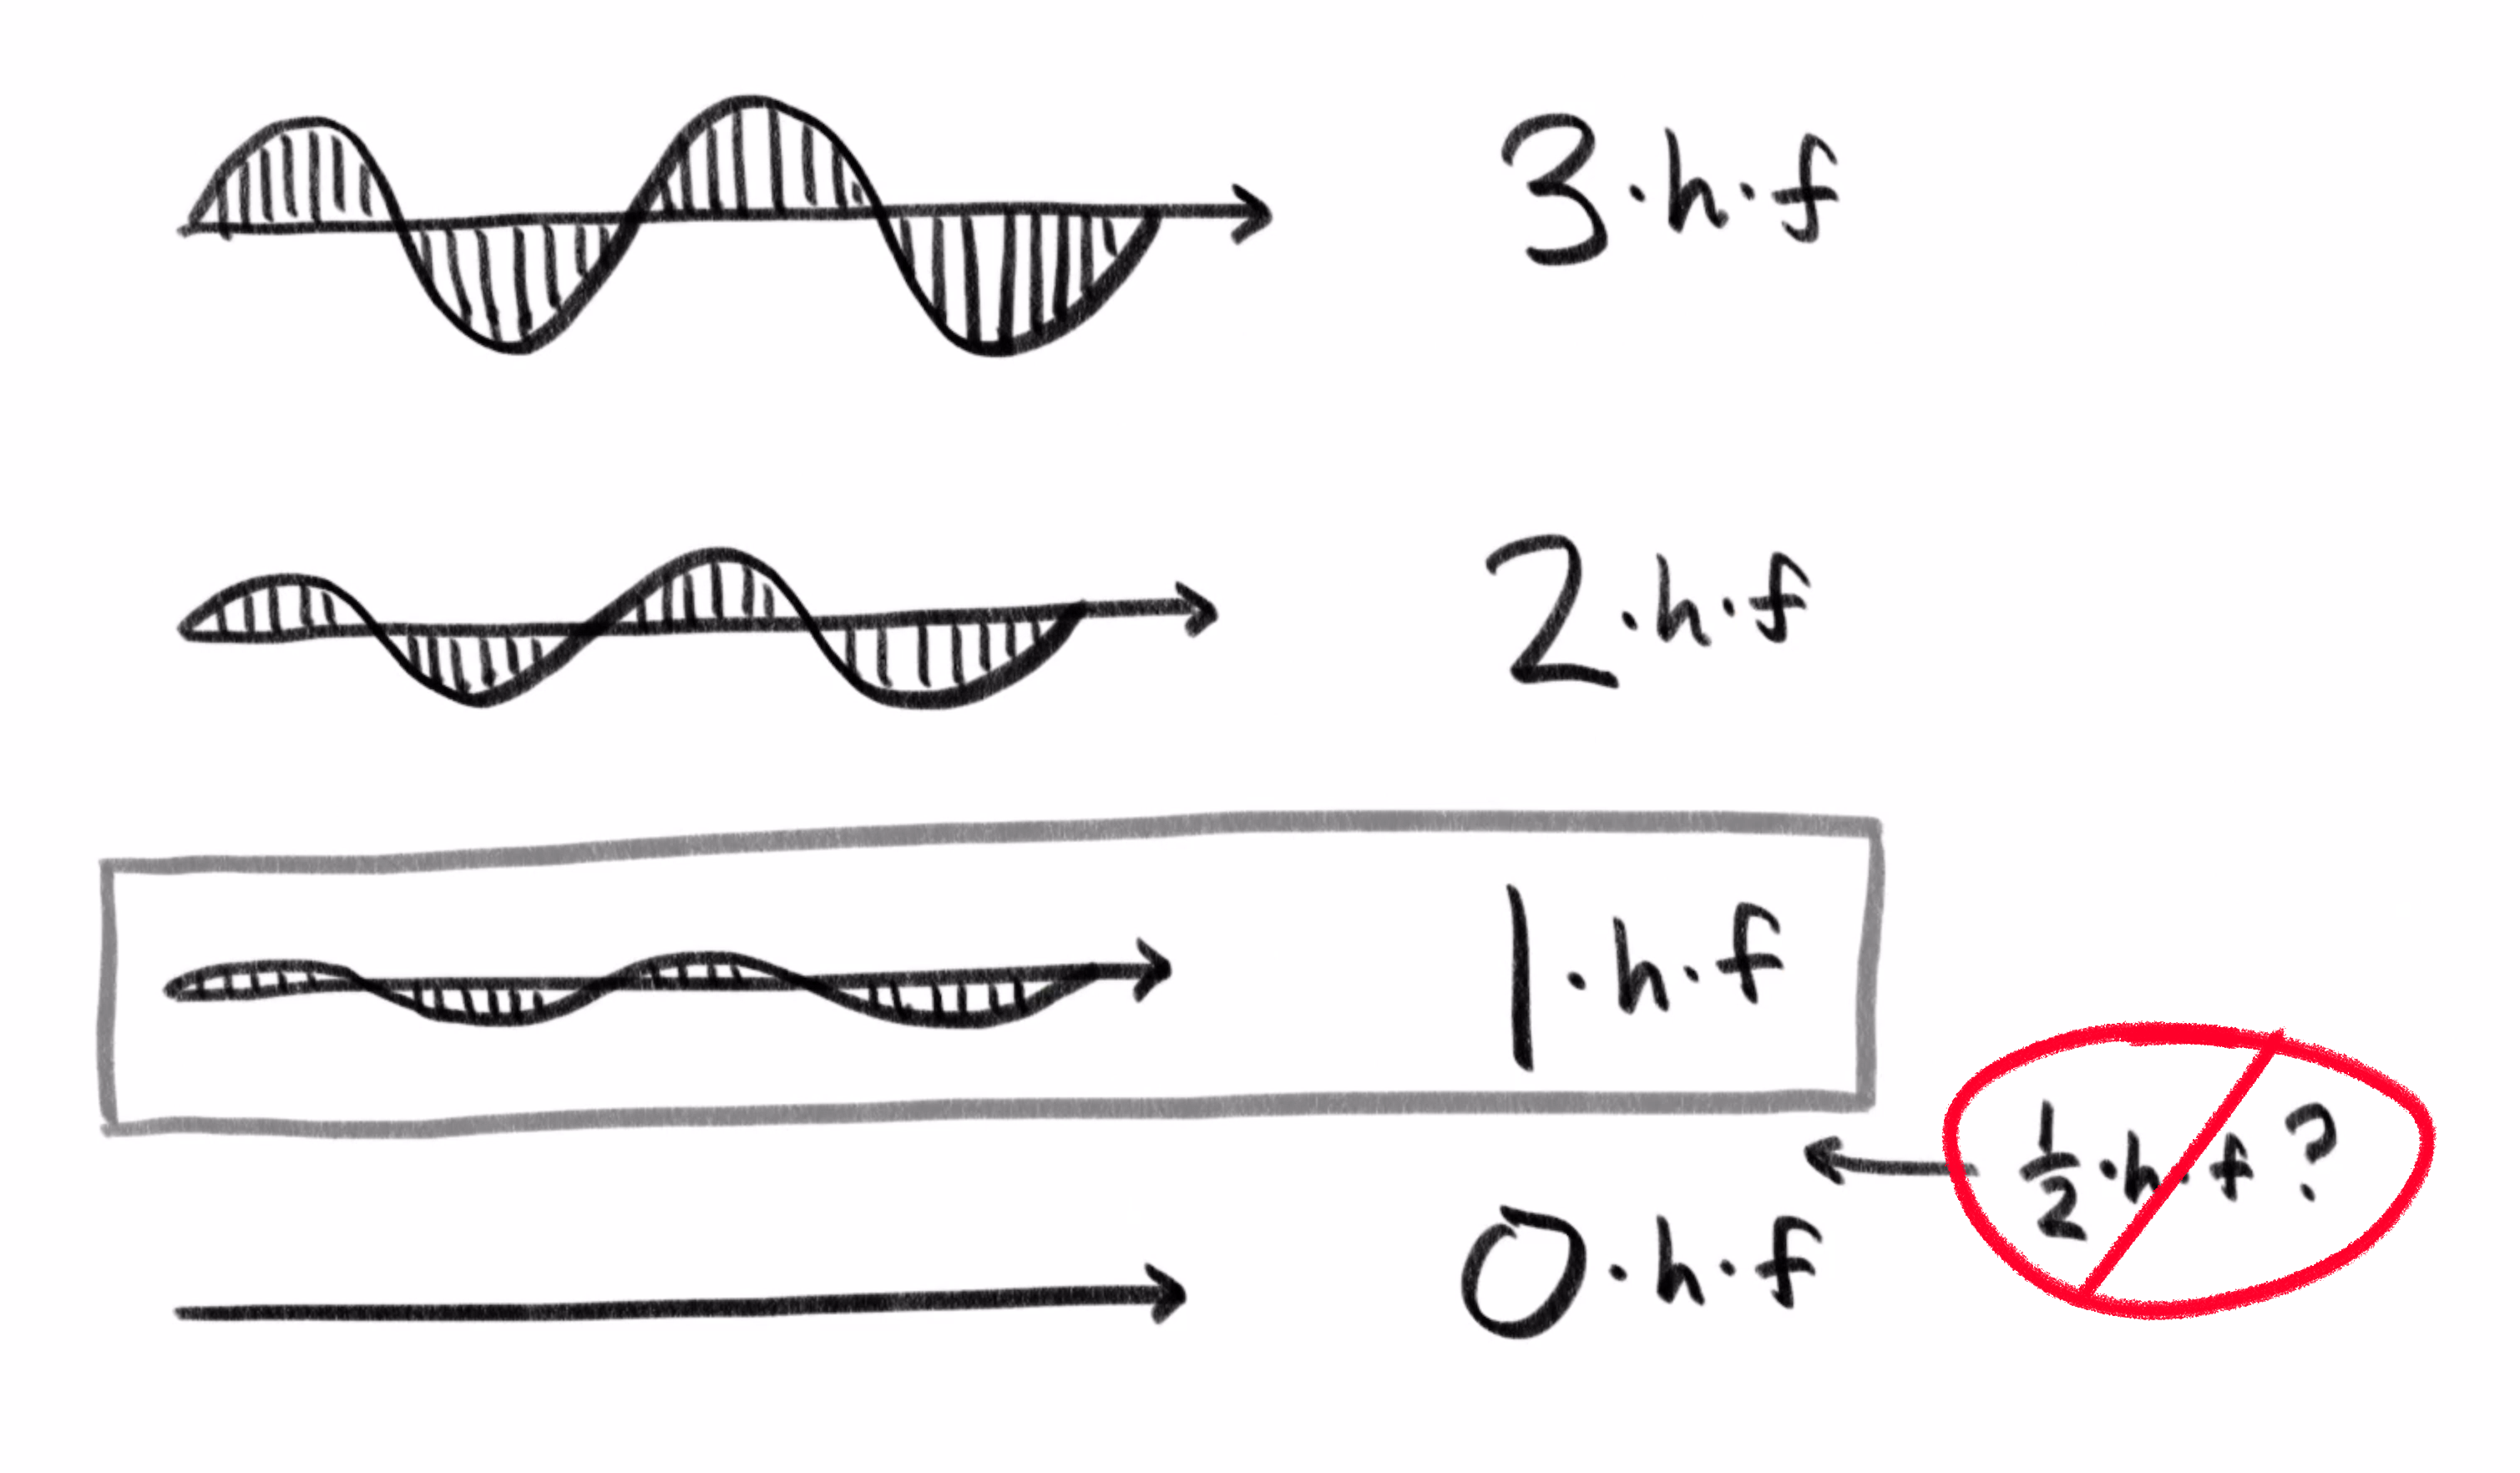 3·h·f
2·h·f
1·h·f
½·h·f?
0·h·f